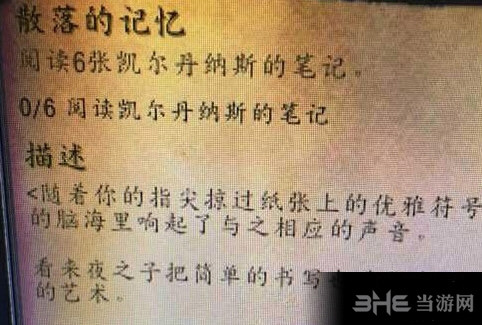 散落的记忆
阅读6张凯尔丹纳斯的笔记。
0/6 阅读凯尔丹纳斯的笔记
描述
<随着你的指尖掠过纸张上的优雅符号
的脑海里响起了与之相应的声音。
看来夜之子把简单的书写
的艺术。
3HE 当游网